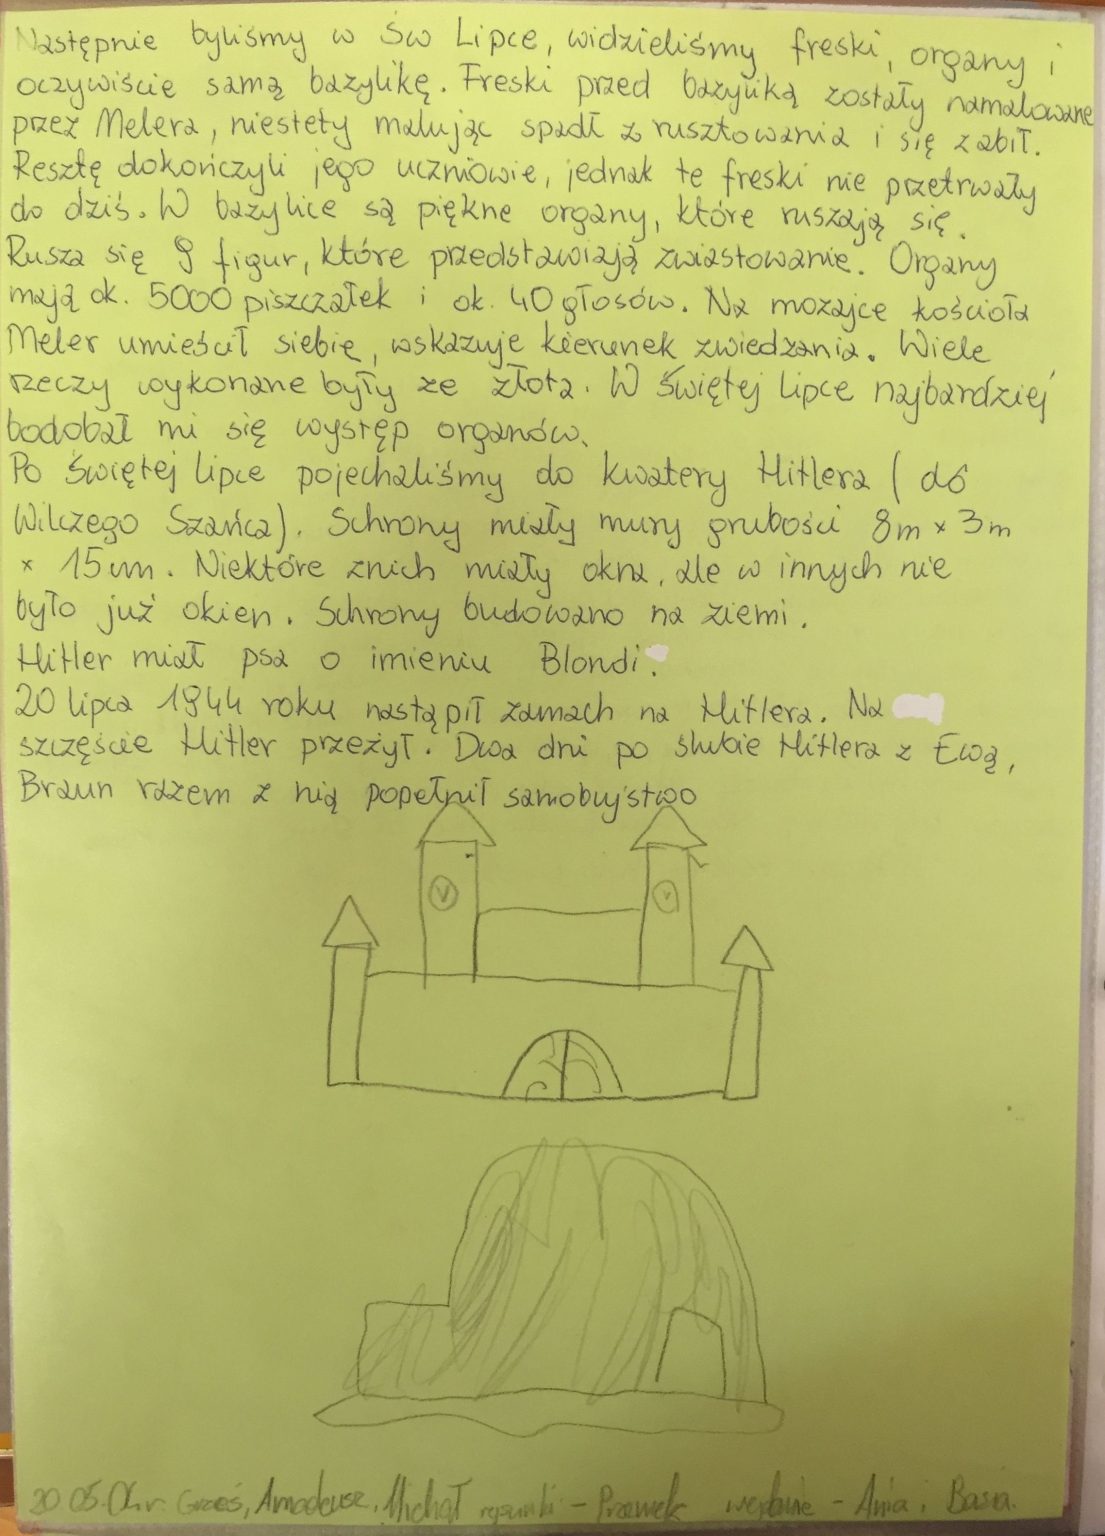 Następnie byliśmy w Św Lipce, widzieliśmy freski, organy i
oczywiście samą bazylikę. Freski przed bazyliką zostały namalowane
przez Melera, niestety malując spadł z rusztowania i się zabił.
Resztę dokończyli jego uczniowie, jednak te freski nie przetrwały
do dziś. W bazylice są piękne organy, które ruszają się.
Rusza się 9 figur, które przedstawiają zwiastowanie. Organy
mają ok. 5000 piszczałek i ok. 40 głosów. Na mozajce kościoła
Meler umieścił siebie, wskazuje kierunek zwiedzania. Wiele
rzeczy wykonane były ze złota. W Świętej Lipce najbardziej
bodobał mi się występ organów.
Po Świętej Lipce pojechaliśmy do kwatery Hitlera ( do
Wilczego Szańca). Schrony miały mury grubości 8m x 3m
x 15cm. Niektóre znich miały okna, ale w innych nie
było już okien. Schrony budowano na ziemi.
Hitler miał psa o imieniu Blondi.
20 lipca 1944 roku nastąpił zamach na Hitlera. Na
szczęście Hitler przeżył. Dwa dni po ślubie Hitlera z Ewą,
Braun razem z nią popełnił samobujstwo
20 05. r. Grześ, Amadeusz, Michał rysunki – Przemek – Ania i Basia.